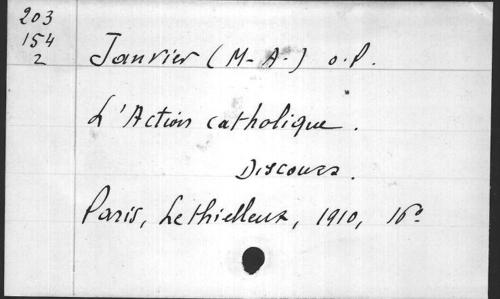 203
154
2
Janvier (M-A-) o.p.
L'Action catholique.
Discours.
Paris, Lethielleux, 1910, 16º